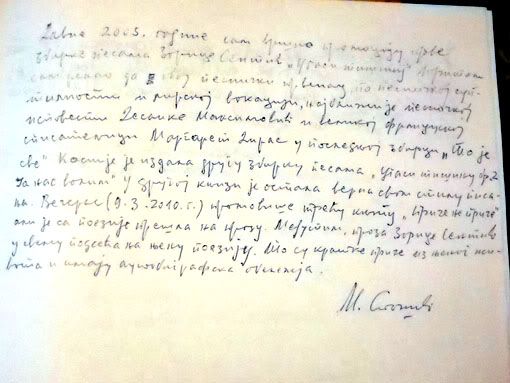 Давне 2005. године сам вршио промоцију прве
збирке песама Зорице Сентић „Угаси тишину". Мислим
сам рекао да је овај песнички првенац, по песничкој сен-
тилности и лирској вокацији, најближи је песничкој
исповести Десанке Максимовић и великој француској
списатељици Маргарет Дирас у последњој збирци „То је
све" Касније је издала другу збирку песама „Угаси тишину бр. 2
За нас волим". У другој књизи је остала верна свом стилу писа-
ња. Вечерас (9.3.2010.г.) промовише трећу књигу „Приче не приче"
али је са поезије прешла на прозу. Међутим, проза Зорице Сентић
у свему подсећа на њену поезију. То су кратке приче из њеног жи-
вота и имају аутобиографска обележја.
М.